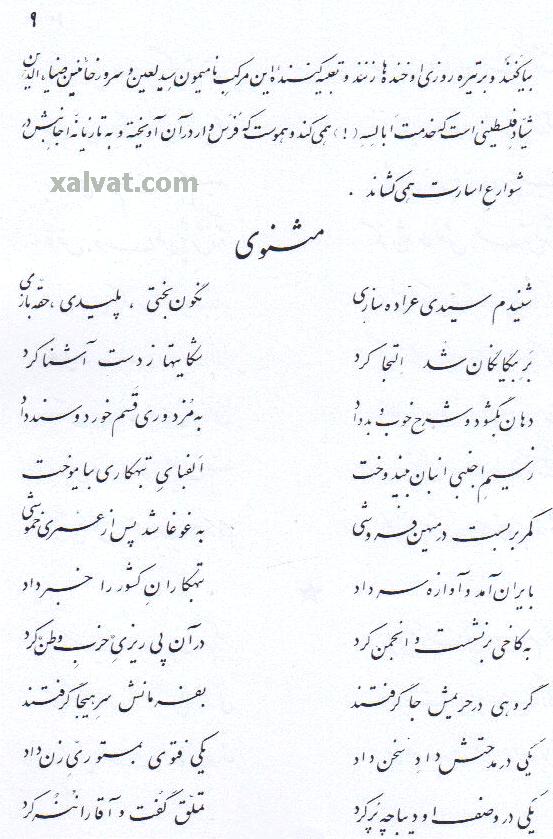 ۹
بیاکنند و بر تیره روزی او خنده ها زنند و تعبیه کنندهٔ این مرکب نامیمون سید لعین و سرور خائنین ضیاء الدین
شیّاد فلسطینی است که خدمت ابالسه (!) همی کند و هموست که فَرَس وار در آن آویخته و به تازیانهٔ اجانبش در
شوارع اسارت همی کشاند .
xalvat.com
مثنوی
شنیدم سیّدی عرّاده سازی نگون بختی ، پلیدی ، حقه بازی
بَرِ بیگانگان شد التجا کرد شکایتها ز دست آشنا کرد
دهان بگشود و شرح خوب و بد داد به مُزدوری قسم خورد و سند داد
ز سیم اجنبی انبان بیندوخت الفبای تبهکاری بیاموخت
کمر بر بست در میهن فروشی به غوغا شد پس از عمری خموشی
بایران آمد و آوازه سر داد تبهکارانِ کشور را خبر داد
به کاخی بر نشست و انجمن کرد در آن پی ریزیِ حزب وطن کرد
گروهی در حریمش جا گرفتند بفرمانش سرِ هیجا گرفتند
یکی در مدحتش دادِ سخن داد یکی فتوی بمستوریِّ زن داد
یکی در وصف او دیباچه پُر کرد تملّق گفت و آقا را شتر کرد